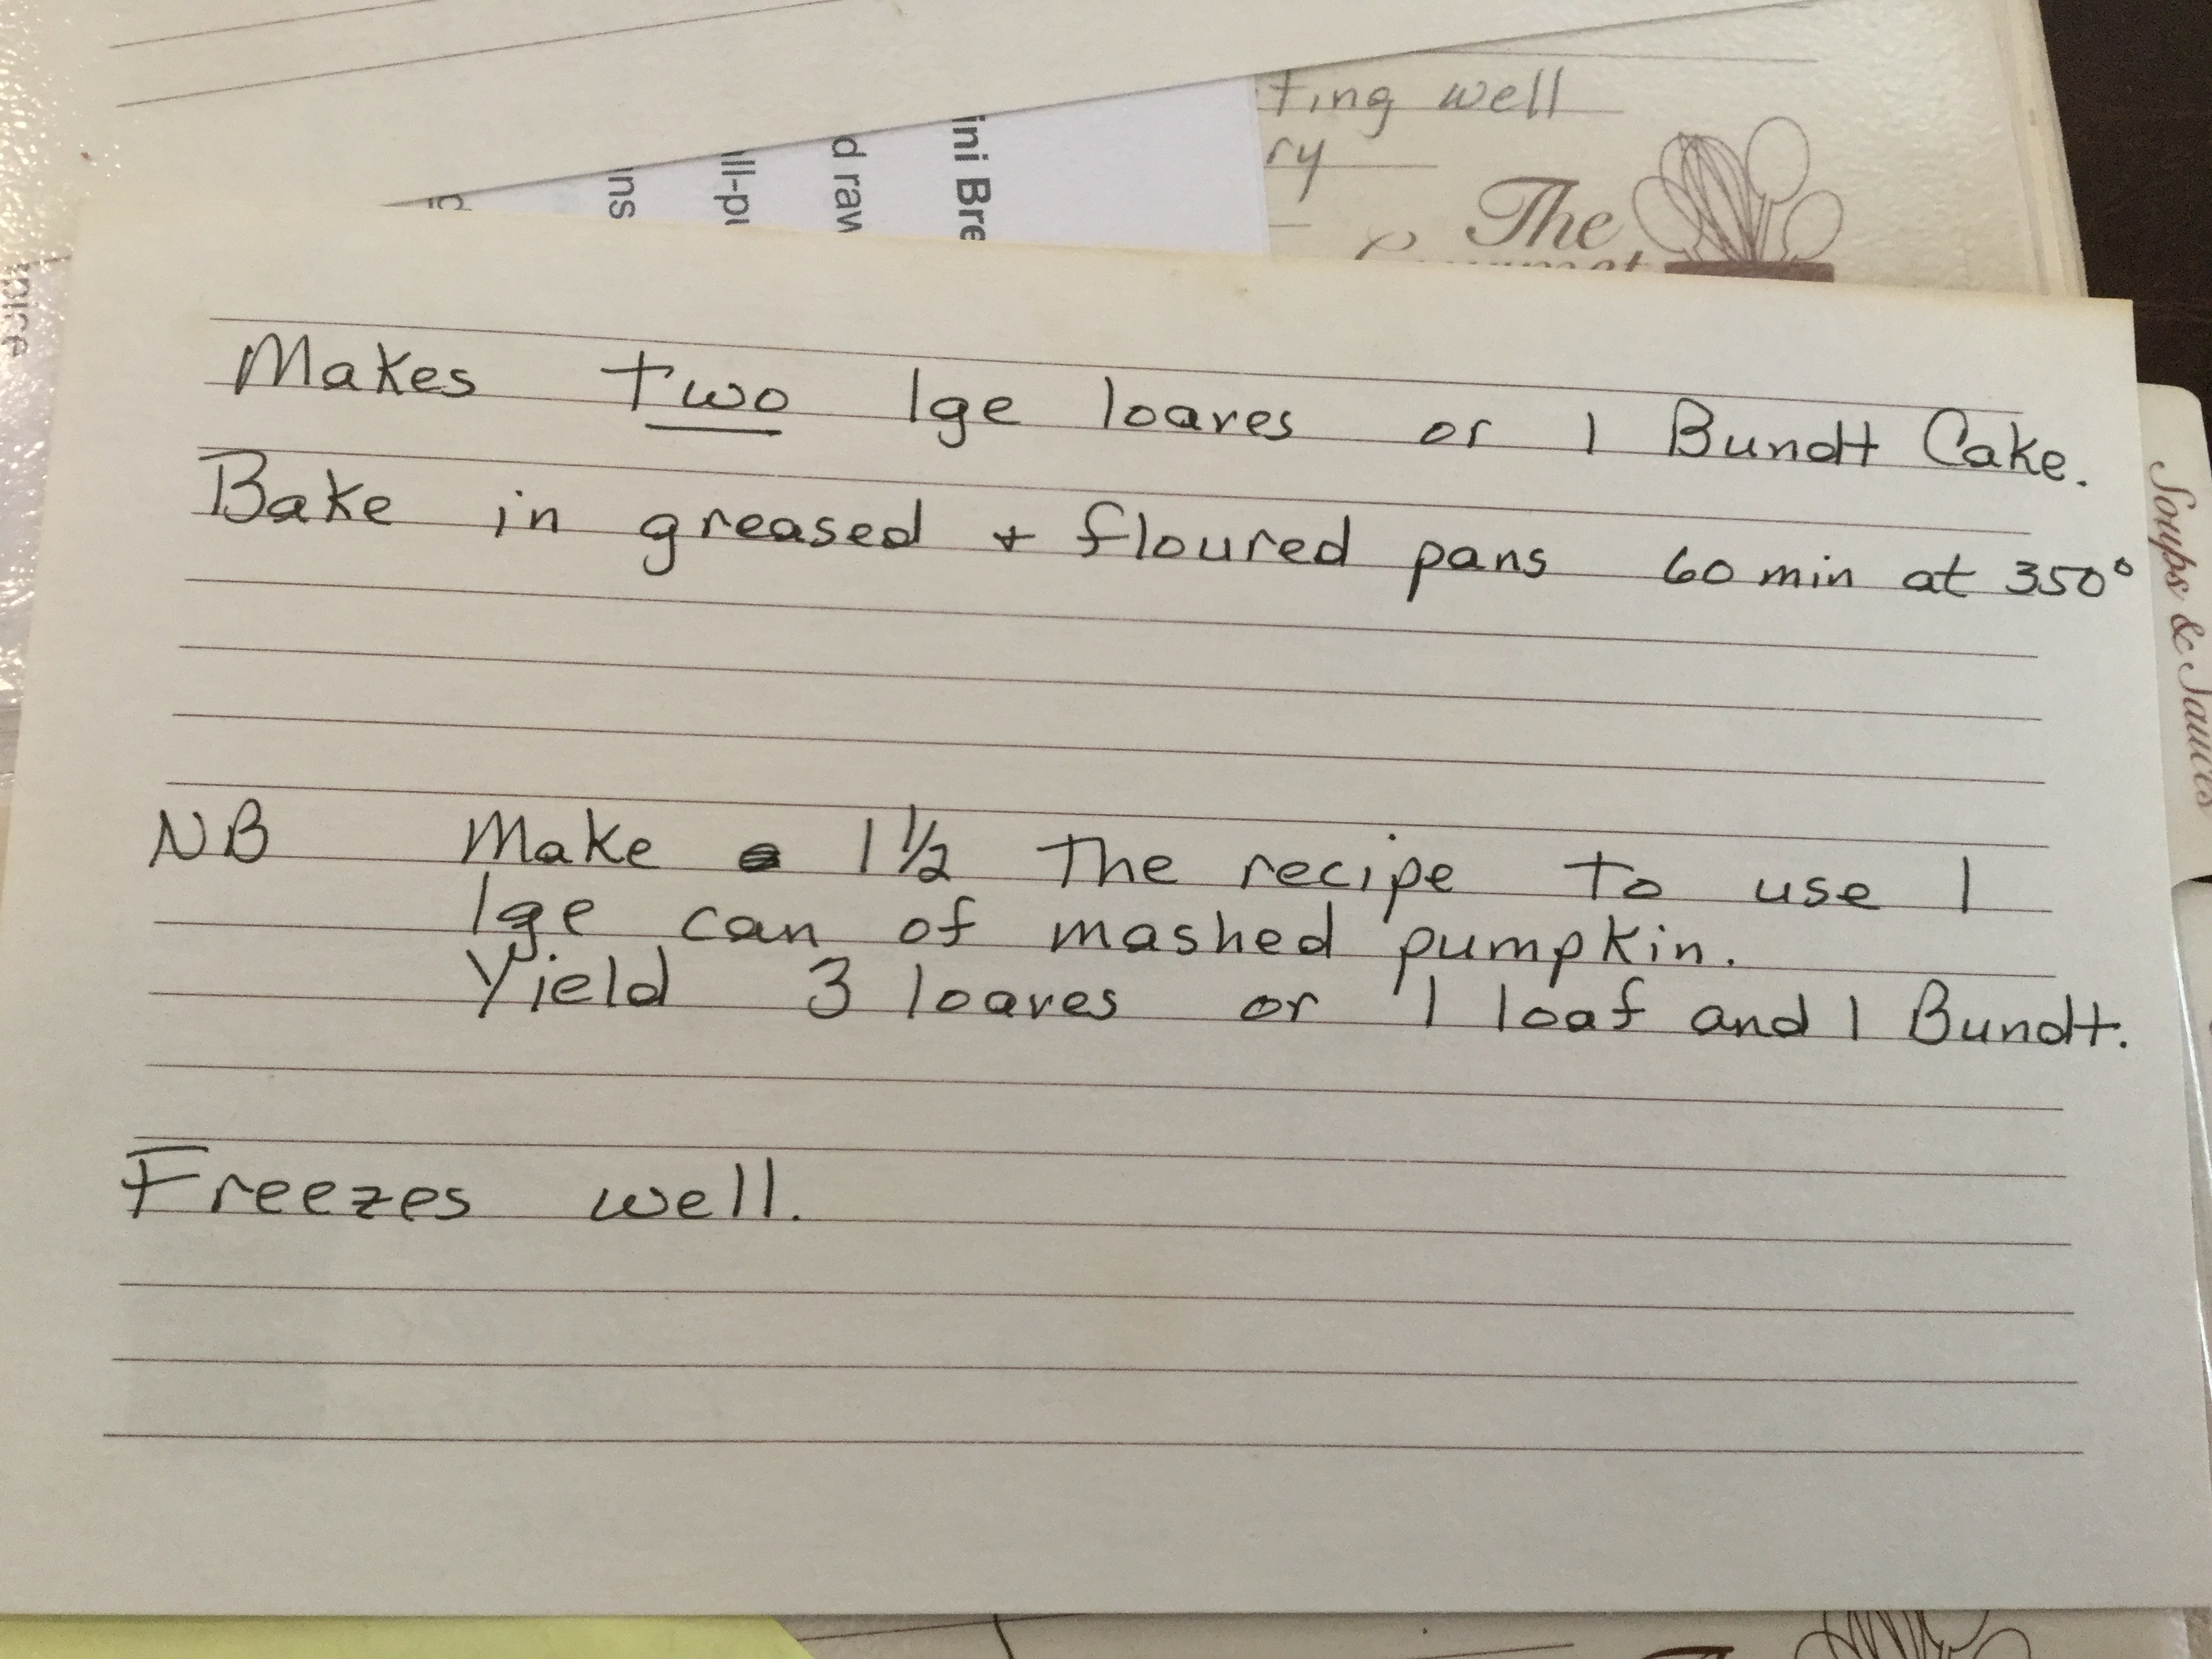 ting well
ry
The
ini Bre
d raw
ns
Makes two lge loaves or 1 Bundt Cake.
Bake in greased + floured pans 60 min at 350°
NB Make 1 1/2 The recipe to use 1
lge can of mashed pumpkin.
Yield 3 loaves or 1 loaf and 1 Bundt.
Freezes well.
Soups & Sauces